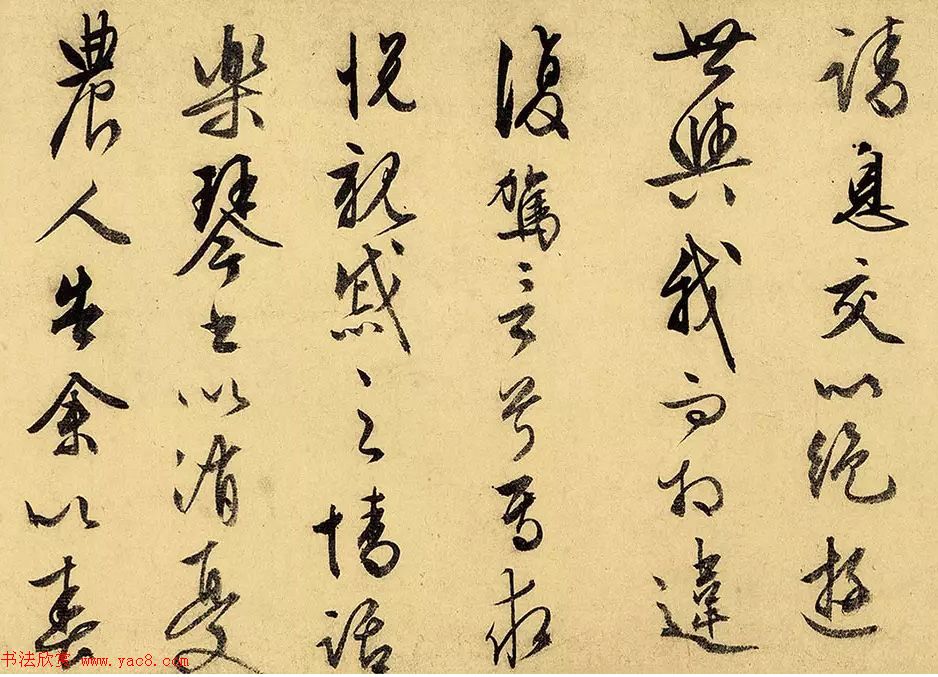 請息交以絕遊
世與我而相違
復駕言兮焉求
悅親戚之情話
樂琴書以消憂
農人告余以春
书法欣赏 www.yac8.com